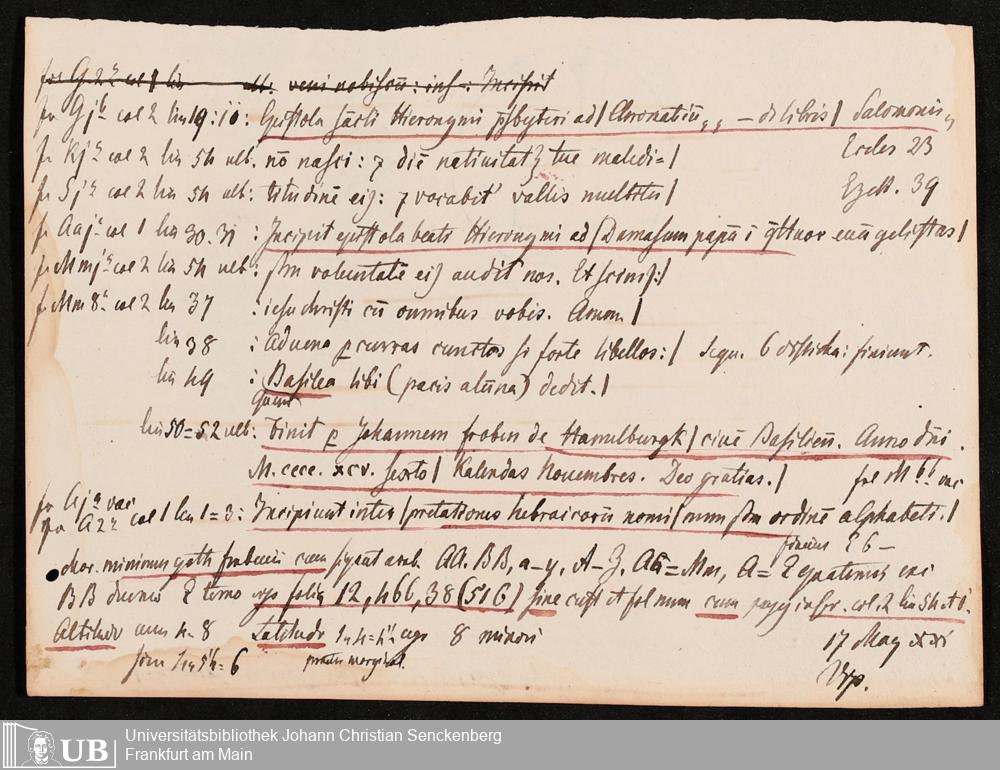 fol G 2ᵃ col 1 lin ult: veni nobiscū: inf: Incipit
fo G jᵇ col 2 lin 19:ii: Epistola sācti Hieronymi p̄sbyteri ad / Chromatiū — d'libris / Salomonis
fo Kjᵃ col 2 lin 54 ult. nō nasci: ⁊ diē natiuitatꝫ tue maledi= / Eccles 23
fo Sjᵃ col 2 lin 54 ult: titudinē eiꝫ: ⁊ vocabit' vallis multitu / Ezech. 39
fo Aajᵃ col 1 lin 30. 31 : Incipit epistola beati Hieronymi ad / Damasum papā ī q̄ttuor euāgelistas /
fo Mmjᵃ col 2 lin 54 ult: s̄m voluntatē eiꝫ audit nos. Et scimꝫ: /
fo Mm 8ᵃ col 2 lin 37 : iesu christi cū omnibus vobis. Amen. /
lin 38 : Aduena ꝑcurras cunctos si forte libellos: / sequ. 6 disticha: finiunt.
lin 49 : Basilea tibi (pacis alūna) dedit. /
quem
lin 50=52 ult: Finit ꝑ Johannem froben de Hamelburgk / ciuē Basilieñ. Anno dn̄i.
M.cccc.xcv. sexto / Kalendas Nouembres. Deo gratias. / fol M 6ᵇ vac
fo Ajᵃ vac
fo A2ᵃ col 1 lin 1=3: Incipiunt inter / pretationes hebraicorū nomi / num s̄m ordinē alphabeti. /
finiens E6 —
char. minimus goth frobenii cum signat amb. AA. BB, a–y, A–Z, Aa=Mm, A= E quaternis exc
BB duerno E terno cus folia 12, 466, 38 (516) sine cust et fol num cum pagg inscr. col. 2 lin 54 et i.
Altitudo 4. 8 Latitudo 8 minori 17 May xxi
sine = 6 praeter marginal. Vrp.
Universitätsbibliothek Johann Christian Senckenberg
UB Frankfurt am Main